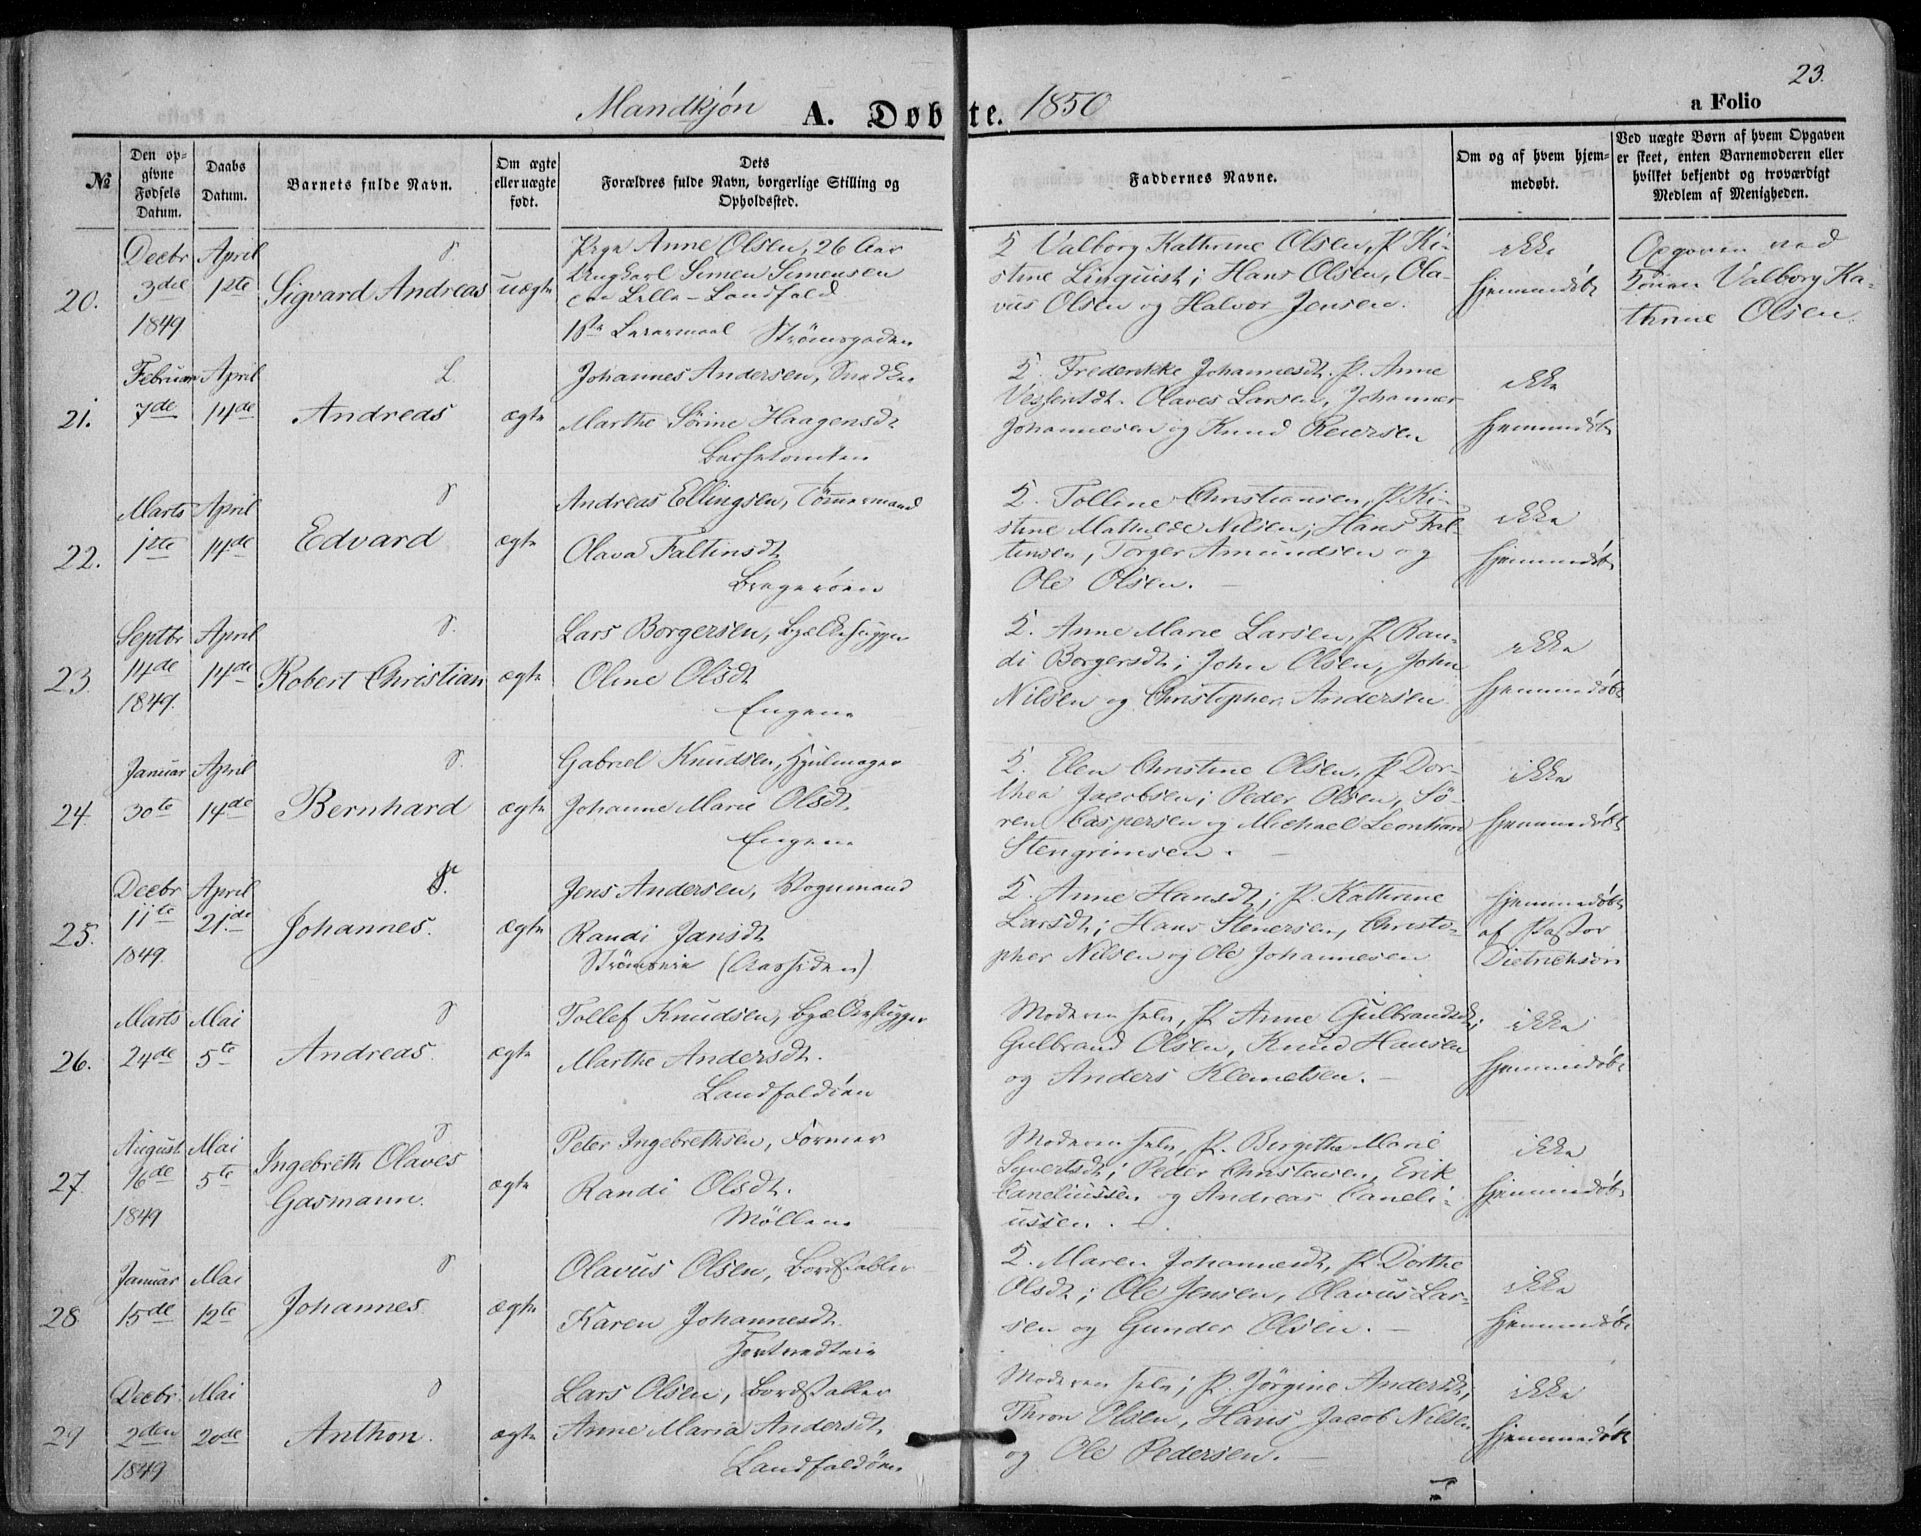 23.
Mandkjøn A. Døbte. 1850 a Folio
№
Den opgivne Fødsels Datum.
Daabs Datum.
Barnets fulde Navn.
Om ægte eller uægte født.
Dets Forældres fulde Navn, borgerlige Stilling og Opholdssted.
Faddernes Navne.
Om og af hvem hjemmedøbt.
Ved uægte Børn af hvem Opgaven er skeet, enten Barnemoderen eller hvilket bekjendt og troværdigt Medlem af Menigheden.
20.
Decbr
3die
1849
April
1ste
Sigvard Andreas
uægte
Pige Anne Olsen, 26 Aar
Ungkarl Simen Simensen
Lille-Landfald
1ste Leiermaal Strømsgaden
Valborg Kathrine Olsen, P. Ki-
stine Linquist; Hans Olsen, Ola-
vus Olsen og Halvor Jensen.
ikke
hjemmedøbt
Opgaven ved
Valborg Ka-
thrine Olsen
21.
Februar
7de
April
14de
Andreas
ægte
Johannes Andersen, Snedker
Marthe Sørine Haagensdt
Frederikke Johannesdt. P. Anne
Olaves Larsen, Johannes
Johannesen og Knud Reiersen
ikke
hjemmedøbt
22.
Marts
1ste
April
14de
Edvard
ægte
Andreas Ellingsen, Tømmermand
Olava Faltinsdt
Bragerøen
Tolline Christiansen, P. Ki-
stine Mathilde Nilsen; Hans Fal-
tinsen, Torger Amundsen og
Ole Olsen.
ikke
hjemmedøbt
23
Septbr
14de
1849.
April
14de
Robert Christian
ægte
Lars Borgersen, Bjælkehugger
Oline Olsdt
Engene
Anne Marie Larsen, P. Ran-
di Borgersdt; John Olsen, John
Nilsen og Christopher Andersen
ikke
hjemmedøbt
24
Januar
30te
April
14de
Bernhard
ægte
Gabriel Knudsen, Hjulmager
Johanne Marie Olsdt.
Engene
Elen Christine Olsen, P. Dor-
thea Jacobsen; Peder Olsen, Sø-
ren Caspersen og Michael Leonhard
Stengrimsen.
ikke
hjemmedøbt
25.
Decbr
11te
1849
April
21de
Johannes.
ægte
Jens Andersen, Vognmand
Randi Jansdt
(Aassiden)
Anne Hansdt; P. Kathrine
Larsdt; Hans Stenersen, Christo-
pher Nilsen og Ole Johannesen
hjemmedøbt
af Pastor
Dietrichson
26.
Marts
24de
Mai
5te
Andreas.
ægte
Tollef Knudsen, Bjælkehugger
Marthe Andersdt.
Landfaldøen
Moderen selv, P. Anne Gulbrandsdt;
Gulbrand Olsen, Knud Hansen
og Anders Klemetsen.
ikke
hjemmedøbt
27
August
16de
1849
Mai
5te
Ingebreth Olaves
Gasmann.
ægte
Peter Ingebrethsen, Former
Randi Olsdt.
Møllene
Moderen selv, P. Bergitha Marie
Sivertsdt; Peder Christensen, Erik
Caneliussen og Andreas Caneli-
ussen.
ikke
hjemmedøbt
28
Januar
15de
Mai
12te
Johannes.
ægte
Olavus Olsen, Bordstabler
Karen Johannesdt.
Maren Johannesdt, P. Dorthe
Olsdt; Ole Jensen, Olavus Lar-
sen og Gunder Olsen.
ikke
hjemmedøbt
29
Decbr.
2den
1849
Mai
20de
Anthon.
ægte
Lars Olsen, Bordstabler
Anne Maria Andersdt.
Landfaldøen
Moderen selv; P. Jørgine Andersdt,
Thron Olsen, Hans Jacob Nilsen
og Ole Pedersen.
ikke
hjemmedøbt